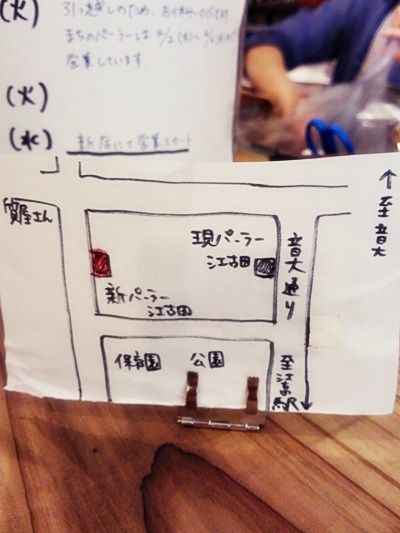 (火)
引っ越しのため、
まちのパーラーは
営業しています。
(火)
(水) 新店にて営業スタート
質屋さん
現パーラー
江古田
新パーラー
江古田
音大通り
↑至音大
保育園 公園
至江古田駅